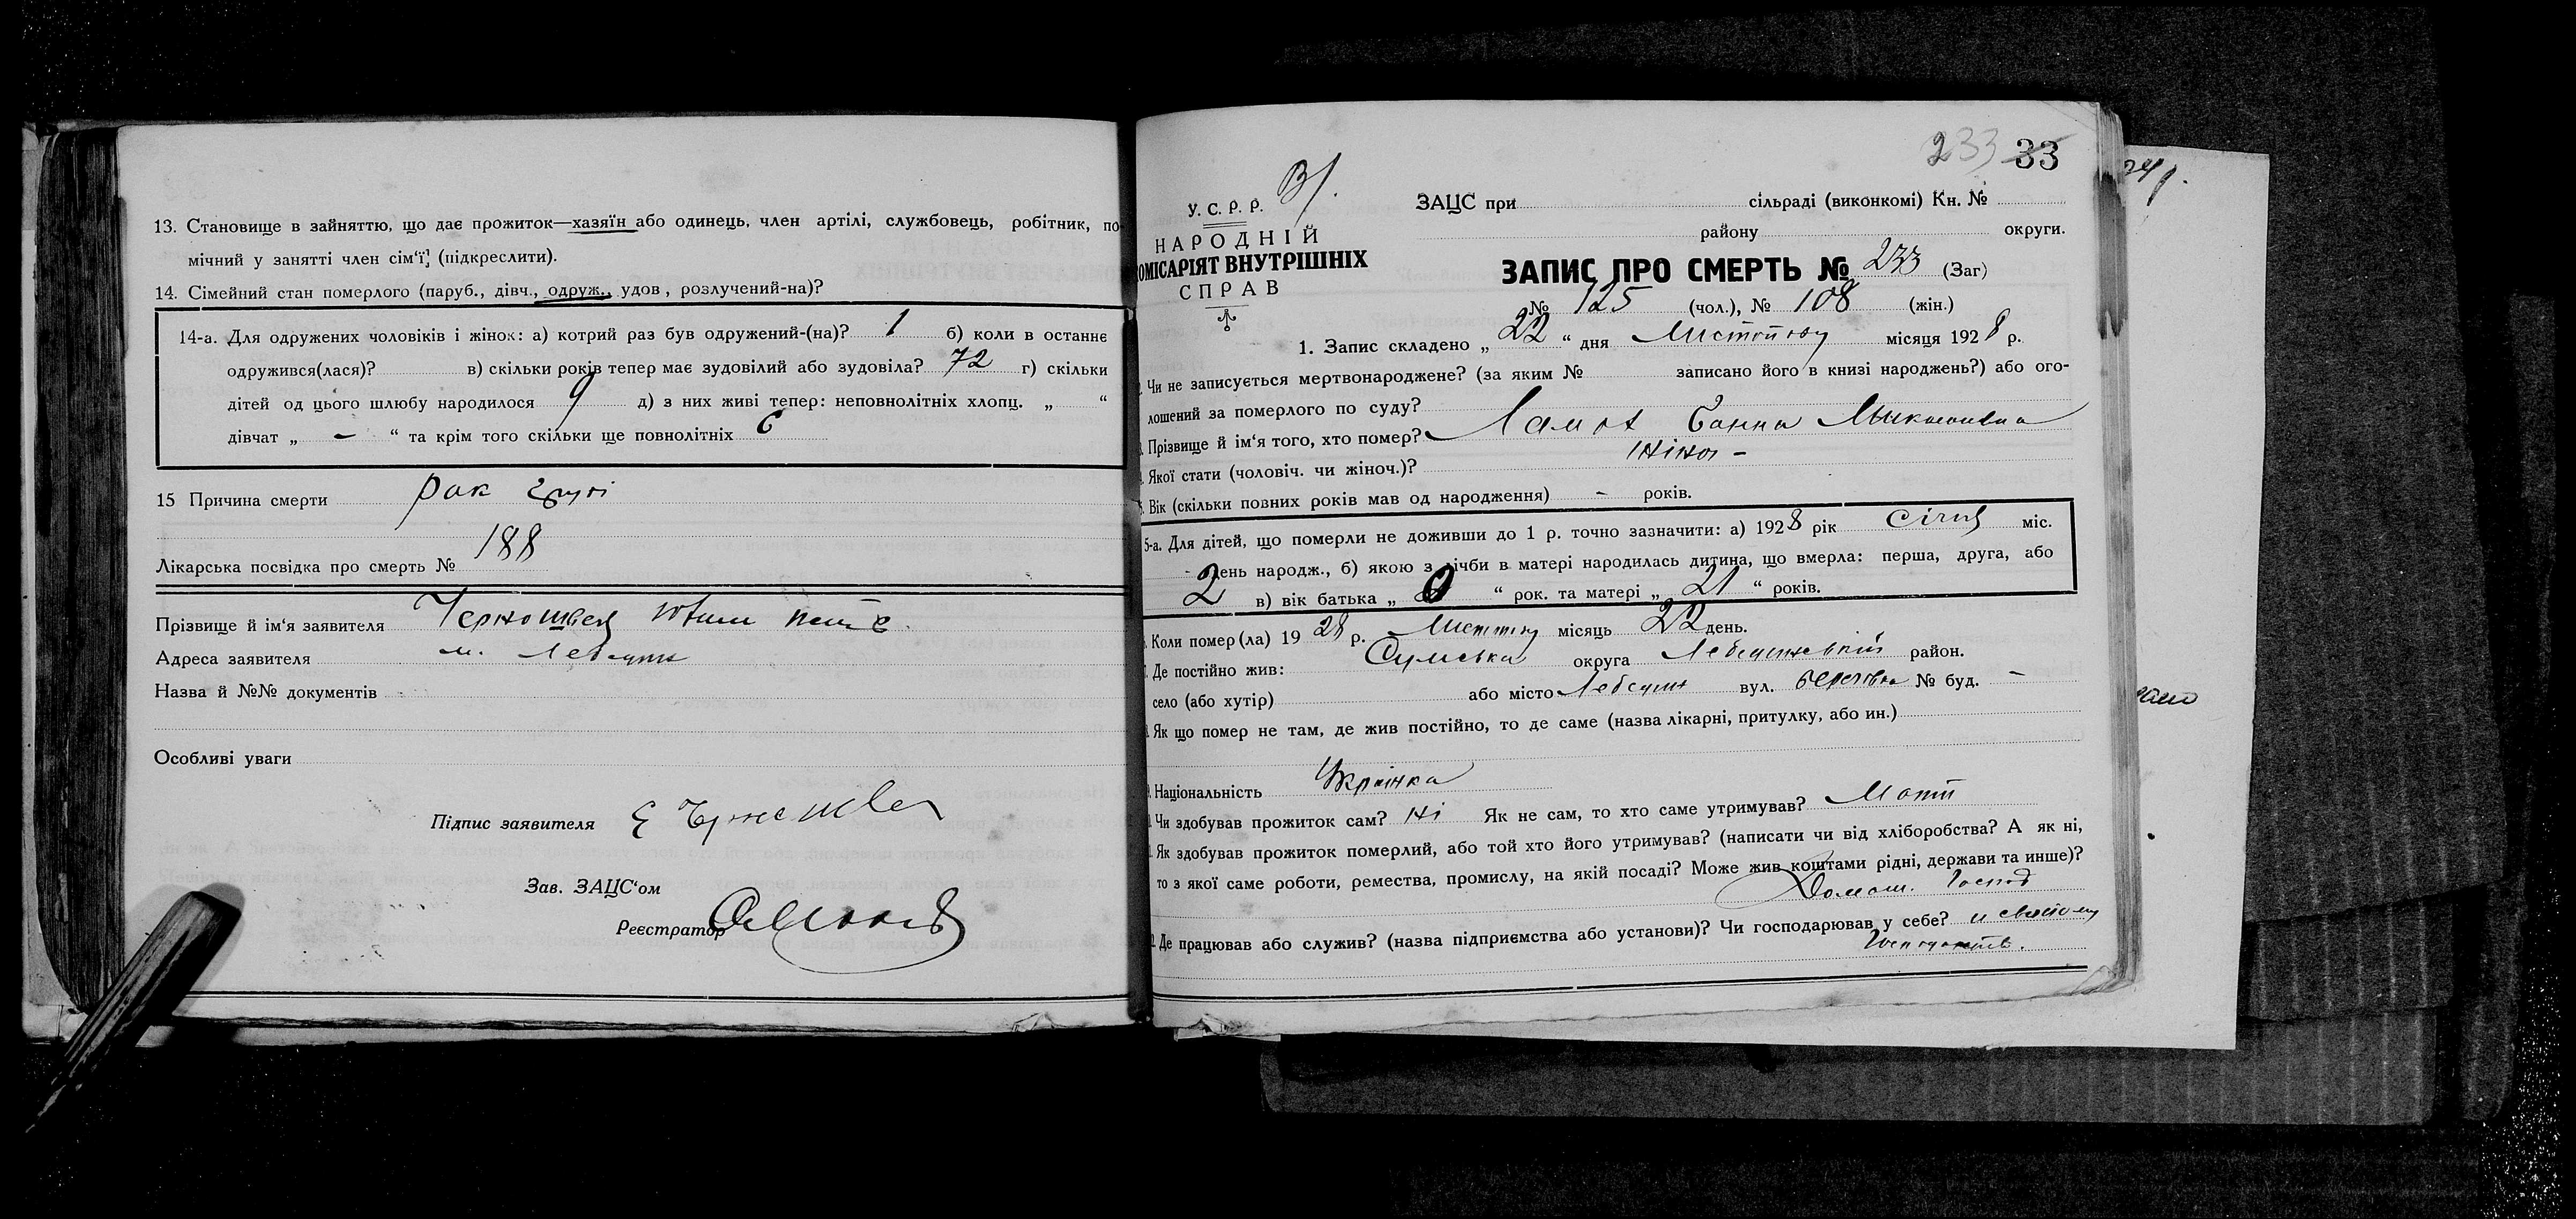 13. Становище в зайняттю, що дає прожиток—хазяїн або одинець, член артілі, службовець, робітник, по-
мічний у занятті член сім‘ї, (підкреслити).
14. Сімейний стан померлого (паруб., дівч., одруж., удов, розлучений-на)?
14-а. Для одружених чоловіків і жінок: а) котрий раз був одружений-(на)? 1 б) коли в останнє
одружився(лася)? в) скільки років тепер має зудовілий або зудовіла? 72 г) скільки
дітей од цього шлюбу народилося 9 д) з них живі тепер: неповнолітніх хлопц. „ “
дівчат „ - “ та крім того скільки ще повнолітніх 6
15 Причина смерти рак груді
Лікарська посвідка про смерть № 188
Прізвище й ім‘я заявителя Черношвей
Адреса заявителя м. Лебедин
Назва й №№ документів
Особливі уваги
Підпис заявителя
Зав. ЗАЦС‘ом
Реєстратор
233 33
У. С. Р. Р.
НАРОДНІЙ
КОМІСАРІЯТ ВНУТРІШНІХ
СПРАВ
ЗАЦС при сільраді (виконкомі) Кн. №
району округи.
ЗАПИС ПРО СМЕРТЬ № 233 (Заг)
№ 125 (чол.), № 108 (жін.)
1. Запис складено „ 22 “ дня Листопаду місяця 1928 р.
Чи не записується мертвонароджене? (за яким № записано його в книзі народжень?) або ого-
лошений за померлого по суду?
Прізвище й ім‘я того, хто помер? Ганна Миколаївна
Якої стати (чоловіч. чи жіноч.)? жіноч -
Вік (скільки повних років мав од народження) - років.
5-а. Для дітей, що померли не доживши до 1 р. точно зазначити: а) 1928 рік Січня міс.
2 день народж., б) якою з лічби в матері народилась дитина, що вмерла: перша, друга, або
в) вік батька „ 0 “ рок. та матері „ 21 “ років.
Коли помер(ла) 1928 р. Листопад місяць 22 день.
Де постійно жив: Сумська округа Лебединський район.
село (або хутір) або місто Лебедин вул. № буд. -
Як що помер не там, де жив постійно, то де саме (назва лікарні, притулку, або ин.)
Національність Українка
Чи здобував прожиток сам? Ні Як не сам, то хто саме утримував? Мати
Як здобував прожиток померлий, або той хто його утримував? (написати чи від хліборобства? А як ні,
то з якої саме роботи, ремества, промислу, на якій посаді? Може жив коштами рідні, держави та инше)?
Домаш. Господ
Де працював або служив? (назва підприємства або установи)? Чи господарював у себе? в своєму
господарстві.